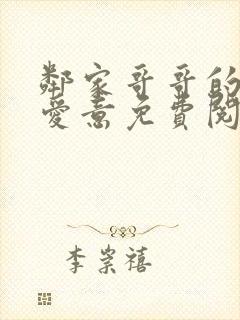 鄰家哥哥的
愛意免費閱
李崇禧